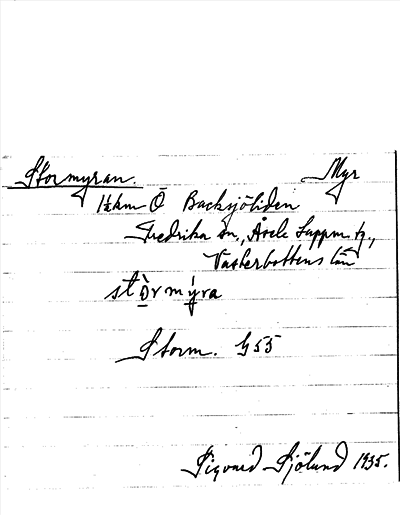 Stormyran. Myr
1½ km Ö Backsjöliden
Fredrika sn., Åsele Lappm. tg,
Västerbottens län
stɷ̀rmýra
Storm. G55
Sigvard Sjölund 1935.